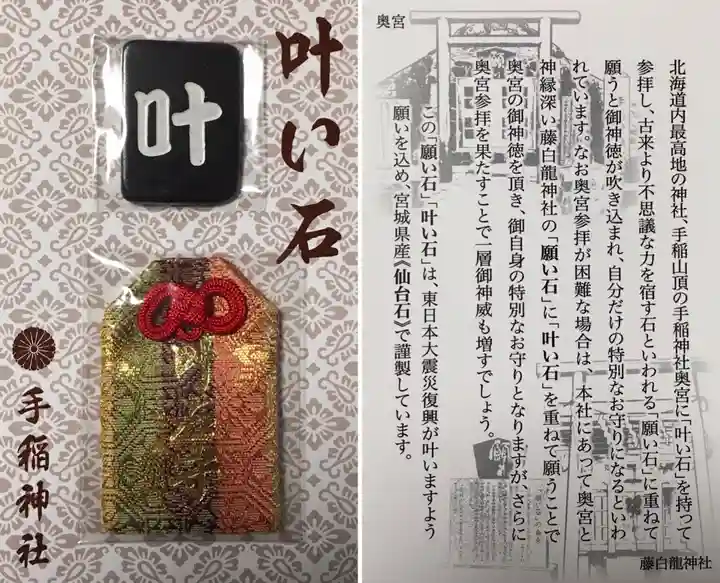 叶い石
叶
手稲神社
奥宮
北海道内最高地の神社、手稲山頂の手稲神社奥宮に「叶い石」を持って
参拝し、古来より不思議な力を宿す石といわれる「願い石」に重ねて
願うと御神徳が吹き込まれ、自分だけの特別なお守りになるといわ
れています。なお奥宮参拝が困難な場合は、本社にあって奥宮と
神縁深い藤白龍神社の「願い石」に「叶い石」を重ねて願うことで
奥宮の御神徳を頂き、御自身の特別なお守りとなりますが、さらに
奥宮参拝を果たすことで一層御神威も増すでしょう。
この「願い石」「叶い石」は、東日本大震災復興が叶いますよう
願いを込め、宮城県産《仙台石》で謹製しています。
藤白龍神社